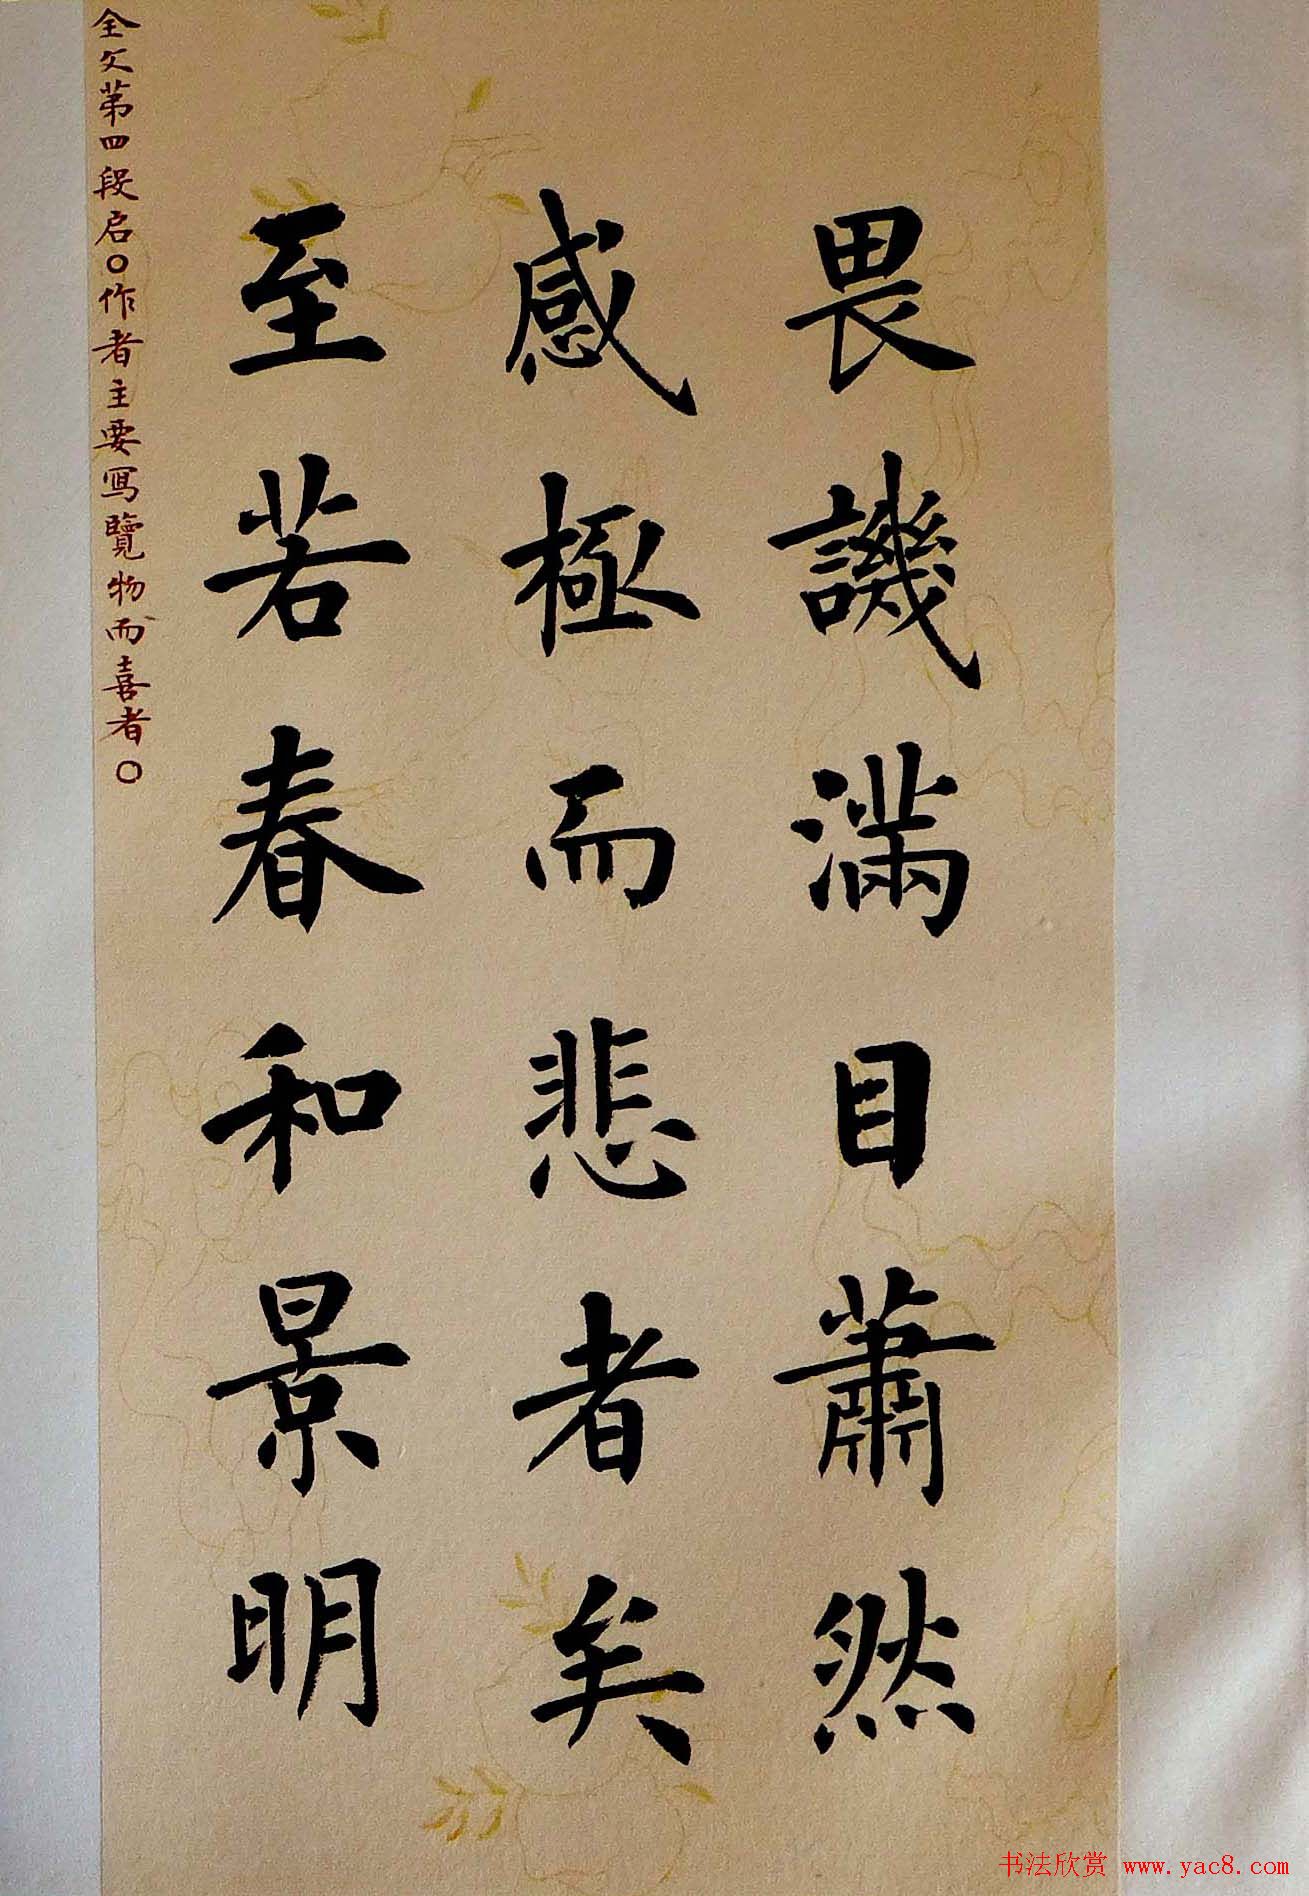 畏譏滿目蕭然
感極而悲者矣
至若春和景明
全文第四段启〇作者主要寫覽物而喜者〇
书法欣赏 www.yac8.com